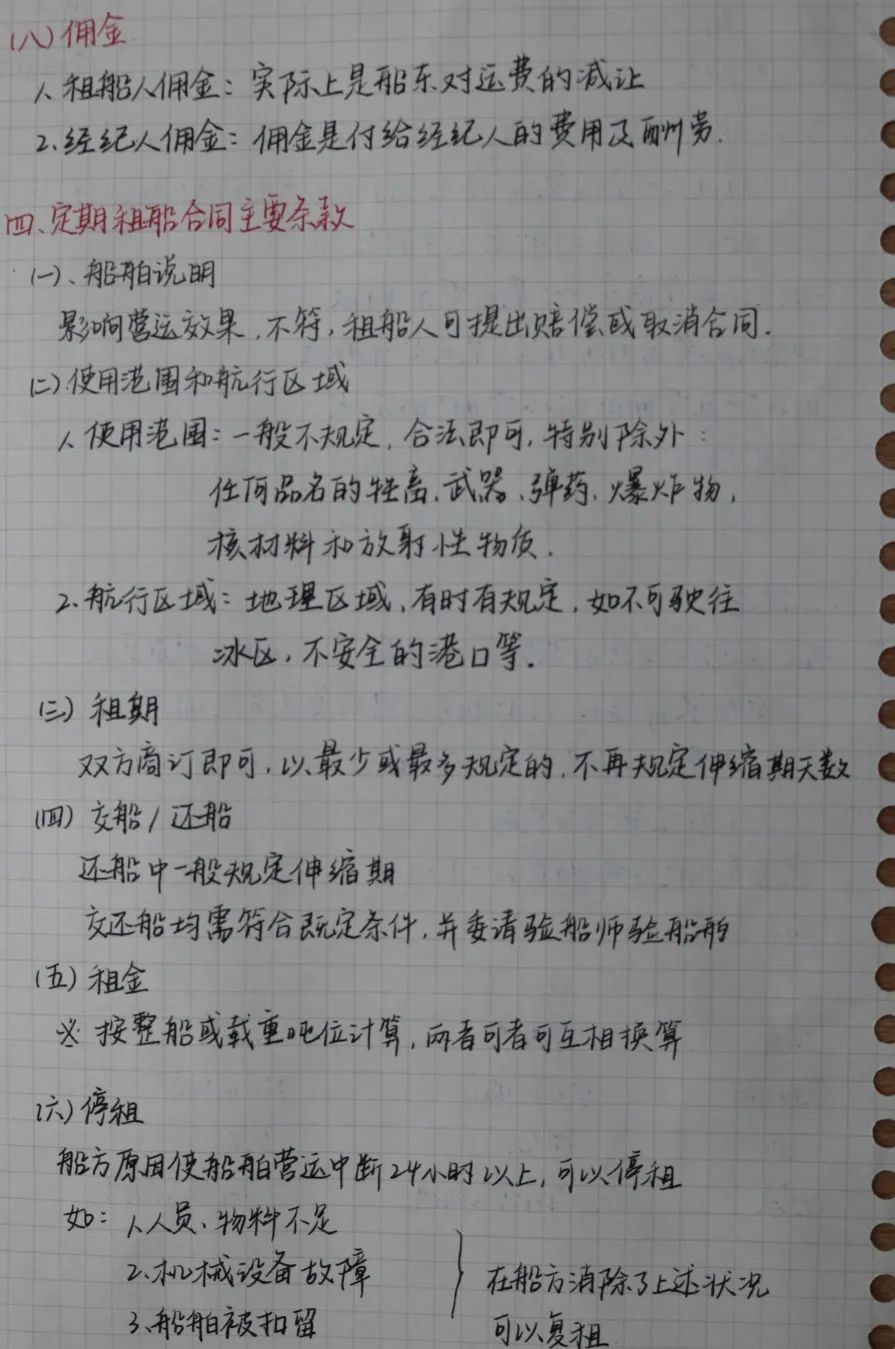 (八)佣金
1、租船人佣金：实际上是船东对运费的减让
2、经纪人佣金：佣金是付给经纪人的费用及酬劳.
四、定期租船合同主要条款
(一)、船舶说明
影响营运效果,不符,租船人可提出赔偿或取消合同.
(二)使用范围和航行区域
1、使用范围：一般不规定,合法即可,特别除外：
任何品名的牲畜、武器、弹药、爆炸物,
核材料和放射性物质.
2.航行区域：地理区域,有时有规定,如不可驶往
冰区,不安全的港口等.
(三)租期
双方商订即可,以最少或最多规定的,不再规定伸缩期天数
(四)交船/还船
还船中一般规定伸缩期
交还船均需符合既定条件,并委请验船师验船舶
(五)租金
※按整船或载重吨位计算,两者可者可互相换算
(六)停租
船方原因使船舶营运中断24小时以上,可以停租
如：1、人员、物料不足
2、机械设备故障
3、船舶被扣留
在船方消除了上述状况
可以复租